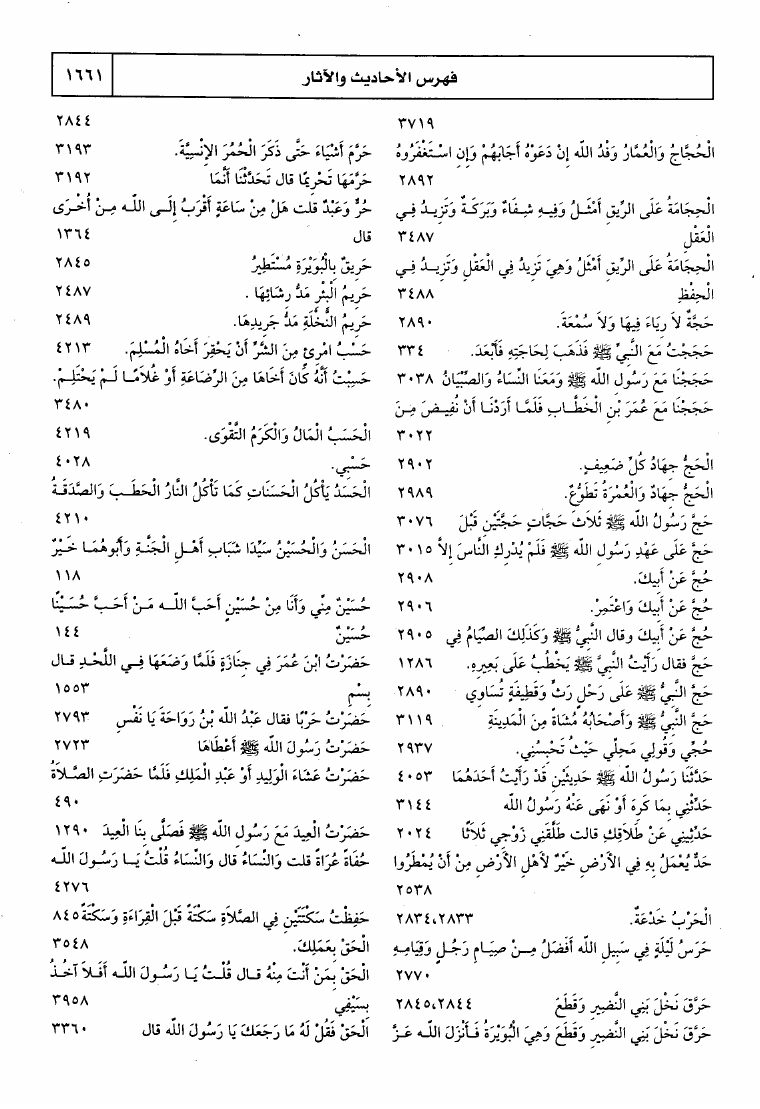 فهرس الأحاديث والآثار
١٦٦١
٣٧١٩
الْحُجَّاجُ وَالْعُمَّارُ وَفْدُ الله إِنْ دَعَوْهُ أَجَابَهُمْ وَإِنِ اسْتَغْفَرُوهُ
٢٨٩٢
الْحِجَامَةُ عَلَى الرِّيقِ أَمْثَلُ وَفِيهِ شِفَاءٌ وَبَرَكَةٌ وَتَزِيدُ فِي
الْعَقْلِ ٣٤٨٧
الْحِجَامَةُ عَلَى الرِّيقِ أَمْثَلُ وَهِيَ تَزِيدُ فِي الْعَقْلِ وَتَزِيدُ فِي
الْحِفْظِ ٣٤٨٨
حَجَّةٌ لاَ رِيَاءَ فِيهَا وَلاَ سُمْعَةَ. ٢٨٩٠
حَجَجْتُ مَعَ النَّبِيِّ ﷺ فَذَهَبَ لِحَاجَتِهِ فَأَبْعَدَ. ٣٣٤
حَجَجْنَا مَعَ رَسُولِ الله ﷺ وَمَعَنَا النِّسَاءُ وَالصِّبْيَانُ ٣٠٣٨
حَجَجْنَا مَعَ عُمَرَ بْنِ الْخَطَّابِ فَلَمَّا أَرَدْنَا أَنْ نُفِيضَ مِنَ
٣٠٢٢
الْحَجُّ جِهَادُ كُلِّ ضَعِيفٍ. ٢٩٠٢
الْحَجُّ جِهَادٌ وَالْعُمْرَةُ تَطَوُّعٌ. ٢٩٨٩
حَجَّ رَسُولُ الله ﷺ ثَلاَثَ حَجَّاتٍ حَجَّتَيْنِ قَبْلَ ٣٠٧٦
حَجَّ عَلَى عَهْدِ رَسُولِ الله ﷺ فَلَمْ يُدْرِكِ النَّاسَ إِلاَّ ٣٠١٥
حُجَّ عَنْ أَبِيكَ. ٢٩٠٨
حُجَّ عَنْ أَبِيكَ وَاعْتَمِرْ. ٢٩٠٦
حُجَّ عَنْ أَبِيكَ وقال النَّبِيُّ ﷺ وَكَذَلِكَ الصِّيَامُ فِي ٢٩٠٥
حَجَّ فقال رَأَيْتُ النَّبِيَّ ﷺ يَخْطُبُ عَلَى بَعِيرِهِ. ١٢٨٦
حَجَّ النَّبِيُّ ﷺ عَلَى رَحْلٍ رَثٍّ وَقَطِيفَةٍ تُسَاوِي ٢٨٩٠
حَجَّ النَّبِيُّ ﷺ وَأَصْحَابُهُ مُشَاةً مِنَ الْمَدِينَةِ ٣١١٩
حُجِّي وَقُولِي مَحِلِّي حَيْثُ تَحْبِسُنِي. ٢٩٣٧
حَدَّثَنَا رَسُولُ الله ﷺ حَدِيثَيْنِ قَدْ رَأَيْتُ أَحَدَهُمَا ٤٠٥٣
حَدِّثْنِي بِمَا كَرِهَ أَوْ نَهَى عَنْهُ رَسُولُ الله ٣١٤٤
حَدِّثِينِي عَنْ طَلاَقِكِ قالت طَلَّقَنِي زَوْجِي ثَلاَثًا ٢٠٢٤
حَدٌّ يُعْمَلُ بِهِ فِي الأَرْضِ خَيْرٌ لأَهْلِ الأَرْضِ مِنْ أَنْ يُمْطَرُوا
٢٥٣٨
الْحَرْبُ خَدْعَةٌ. ٢٨٣٤،٢٨٣٣
حَرَسُ لَيْلَةٍ فِي سَبِيلِ الله أَفْضَلُ مِنْ صِيَامِ رَجُلٍ وَقِيَامِهِ
٢٧٧٠
حَرَّقَ نَخْلَ بَنِي النَّضِيرِ وَقَطَعَ ٢٨٤٥،٢٨٤٤
حَرَّقَ نَخْلَ بَنِي النَّضِيرِ وَقَطَعَ وَهِيَ الْبُوَيْرَةُ فَأَنْزَلَ الله عَزَّ
٢٨٤٤
حَرَّمَ أَشْيَاءَ حَتَّى ذَكَرَ الْحُمُرَ الإِنْسِيَّةَ. ٣١٩٣
حَرَّمَهَا تَحْرِيمًا قال تَحَدَّثْنَا أَنَّمَا ٣١٩٢
حُرٌّ وَعَبْدٌ قلت هَلْ مِنْ سَاعَةٍ أَقْرَبُ إِلَى الله مِنْ أُخْرَى
قال ١٣٦٤
حَرِيقٌ بِالْبُوَيْرَةِ مُسْتَطِيرُ ٢٨٤٥
حَرِيمُ الْبِئْرِ مَدُّ رِشَائِهَا . ٢٤٨٧
حَرِيمُ النَّخْلَةِ مَدُّ جَرِيدِهَا. ٢٤٨٩
حَسْبُ امْرِئٍ مِنَ الشَّرِّ أَنْ يَحْقِرَ أَخَاهُ الْمُسْلِمَ. ٤٢١٣
حَسِبْتُ أَنَّهُ كَانَ أَخَاهَا مِنَ الرِّضَاعَةِ أَوْ غُلاَمًا لَمْ يَحْتَلِمْ.
٣٤٨٠
الْحَسَبُ الْمَالُ وَالْكَرَمُ التَّقْوَى. ٤٢١٩
حَسْبِي. ٤٠٢٨
الْحَسَدُ يَأْكُلُ الْحَسَنَاتِ كَمَا تَأْكُلُ النَّارُ الْحَطَبَ وَالصَّدَقَةُ
٤٢١٠
الْحَسَنُ وَالْحُسَيْنُ سَيِّدَا شَبَابِ أَهْلِ الْجَنَّةِ وَأَبُوهُمَا خَيْرٌ
١١٨
حُسَيْنٌ مِنِّي وَأَنَا مِنْ حُسَيْنٍ أَحَبَّ الله مَنْ أَحَبَّ حُسَيْنًا
حُسَيْنٌ ١٤٤
حَضَرْتُ ابْنَ عُمَرَ فِي جِنَازَةٍ فَلَمَّا وَضَعَهَا فِي اللَّحْدِ قال
بِسْمِ ١٥٥٣
حَضَرْتُ حَرْبًا فقال عَبْدُ الله بْنُ رَوَاحَةَ يَا نَفْسِ ٢٧٩٣
حَضَرْتُ رَسُولَ الله ﷺ أَعْطَاهَا ٢٧٢٣
حَضَرْتُ عَشَاءَ الْوَلِيدِ أَوْ عَبْدِ الْمَلِكِ فَلَمَّا حَضَرَتِ الصَّلاَةُ
٤٩٠
حَضَرْتُ الْعِيدَ مَعَ رَسُولِ الله ﷺ فَصَلَّى بِنَا الْعِيدَ ١٢٩٠
حُفَاةً عُرَاةً قلت وَالنِّسَاءُ قال وَالنِّسَاءُ قُلْتُ يَا رَسُولَ الله
٤٢٧٦
حَفِظْتُ سَكْتَتَيْنِ فِي الصَّلاَةِ سَكْتَةً قَبْلَ الْقِرَاءَةِ وَسَكْتَةً ٨٤٥
الْحَقْ بِعَمَلِكَ. ٣٥٤٨
الْحَقْ بِمَنْ أَنْتَ مِنْهُ قال قُلْتُ يَا رَسُولَ الله أَفَلاَ آخُذُ
بِسَيْفِي ٣٩٥٨
الْحَقْ فَقُلْ لَهُ مَا رَجَعَكَ يَا رَسُولَ الله قال ٣٣٦٠